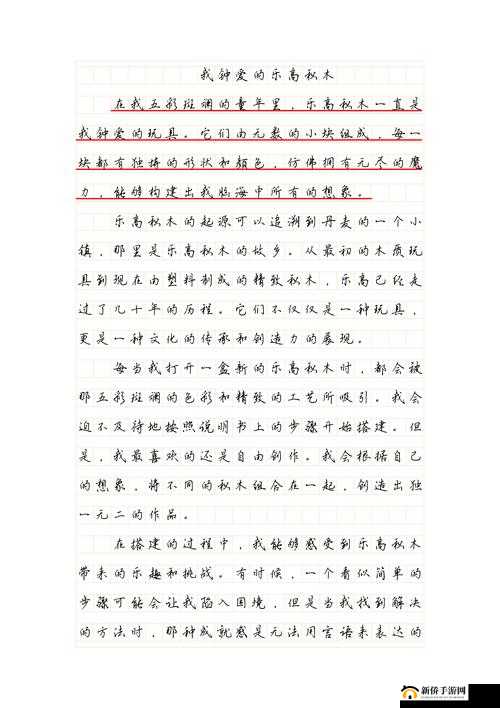 我钟爱的乐高积木
在我五彩斑斓的童年里，乐高积木一直是
我钟爱的玩具。它们由无数的小块组成，每一
块都有独特的形状和颜色，仿佛拥有无尽的魔
力，能够构建出我脑海中所有的想象。
乐高积木的起源可以追溯到丹麦的一个小
镇，那里是乐高积木的故乡。从最初的木质玩
具到现在由塑料制成的精致积木，乐高已经走
过了几十年的历程。它们不仅仅是一种玩具，
更是一种文化的传承和创造力的展现。
每当我打开一盒新的乐高积木时，都会被
那五彩斑斓的色彩和精致的工艺所吸引。我会
迫不及待地按照说明书上的步骤开始搭建。但
是，我最喜欢的还是自由创作。我会根据自己
的想象，将不同的积木组合在一起，创造出独
一无二的作品。
在搭建的过程中，我能够感受到乐高积木
带来的乐趣和挑战。有时候，一个看似简单的
步骤可能会让我陷入困境，但是当我找到解决
的方法时，那种成就感是无法用言语来表达的
新侨手游网